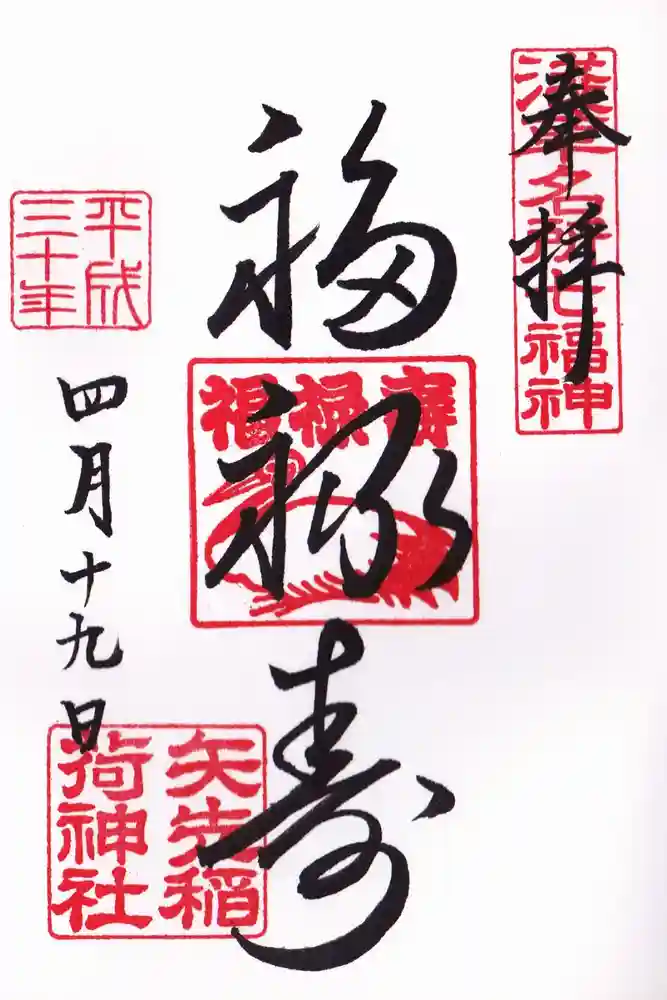 奉拝
浅草名所七福神
福禄寿
壽禄福
平成
三十年
四月十九日
矢先稲
荷神社